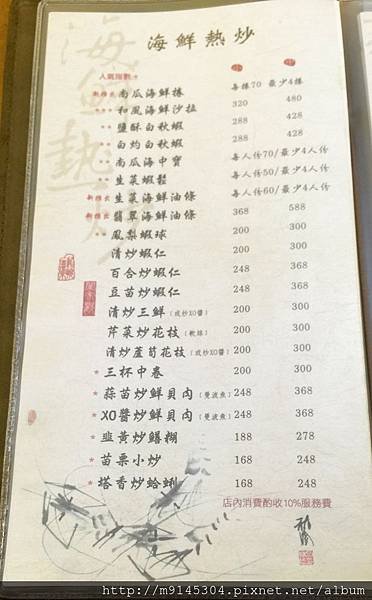 海鮮熱炒
海鮮熱炒
人氣指數
新推出 南瓜海鮮捲 每捲70 最少4捲
*** 和風海鮮沙拉 320 480
** 鹽酥白秋蝦 288 428
** 白灼白秋蝦 288 428
** 南瓜海中寶 每人份70/最少4人份
** 生菜蝦鬆 每人份50/最少4人份
新推出 生菜海鮮油條 每人份60/最少4人份
新推出 翡翠海鮮油條 368 588
** 鳳梨蝦球 200 300
清炒蝦仁 200 300
百合炒蝦仁 248 368
豆苗炒蝦仁 248 368
清炒三鮮(或炒XO醬) 200 300
芹菜炒花枝(軟絲) 200 300
清炒蘆筍花枝(或炒XO醬) 200 300
* 三杯中卷 200 300
* 蒜苗炒鮮貝肉(曼波魚) 248 368
* XO醬炒鮮貝肉(曼波魚) 248 368
* 韭黃炒鱔糊 188 278
* 苗栗小炒 168 248
* 塔香炒蛤蜊 168 248
店內消費酌收10%服務費
http://m9145304.pixnet.net/album